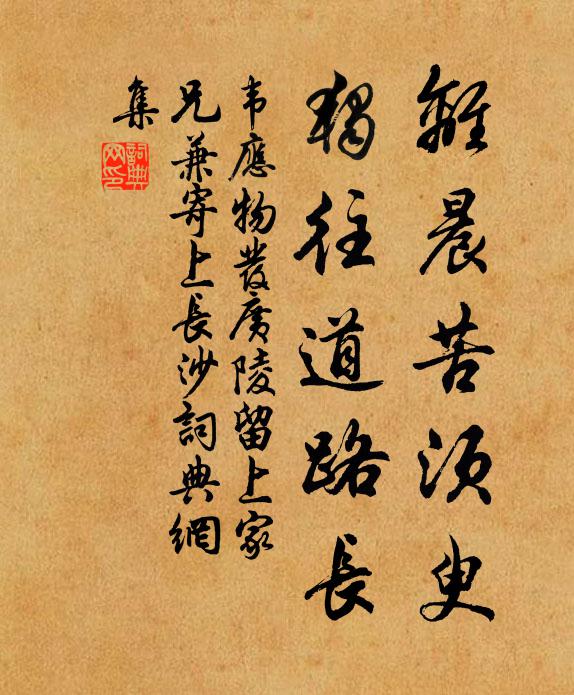 離晨苦須臾
獨往道路長
韦應物發廣陵留上家
兄兼寄上長沙詞典網
集
詞典網印